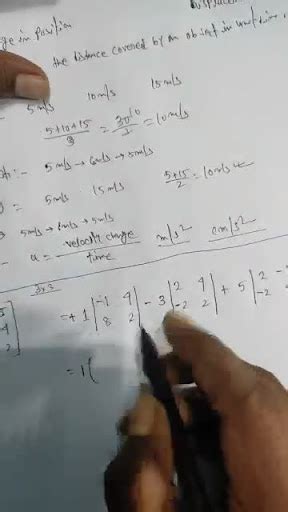 in Position
the distance covered by an object in unit time
5m/s 10m/s 15m/s
5+10+15/3 = 30/3 = 10m/s
:- 5m/s → 6m/s → 5m/s
= 5m/s 15m/s 5+15/2 = 10m/s
5m/s → 6m/s → 5m/s
- a = velocity change/time m/s² cm/s²
3x3
= + 1 |-1 4| - 3 |2 4| + 5 |2 -
8 2 -2 2 -2
2
= 1(